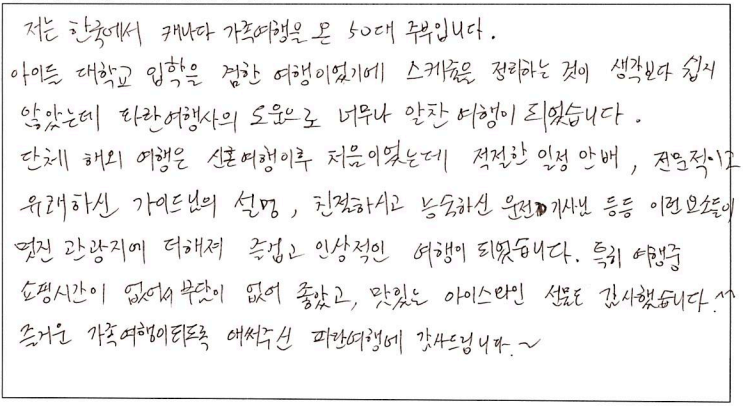 저는 한국에서 캐나다 가족여행을 온 50대 주부입니다.
아이들 대학교 입학을 겸한 여행이었기에 스케줄을 정리하는 것이 생각보다 쉽지
않았는데 파란여행사의 도움으로 너무나 알찬 여행이 되었습니다.
단체 해외 여행은 신혼여행이후 처음이었는데 적절한 일정 안배, 전문적이고
유쾌하신 가이드님의 설명, 친절하시고 능숙하신 운전 기사님 등등 이런 요소들이
멋진 관광지에 더해져 즐겁고 인상적인 여행이 되었습니다. 특히 여행중
쇼핑시간이 없어서 부담이 없어 좋았고, 맛있는 아이스와인 선물도 감사했습니다.^^
즐거운 가족여행이되도록 애써주신 파란여행에 감사드립니다.~